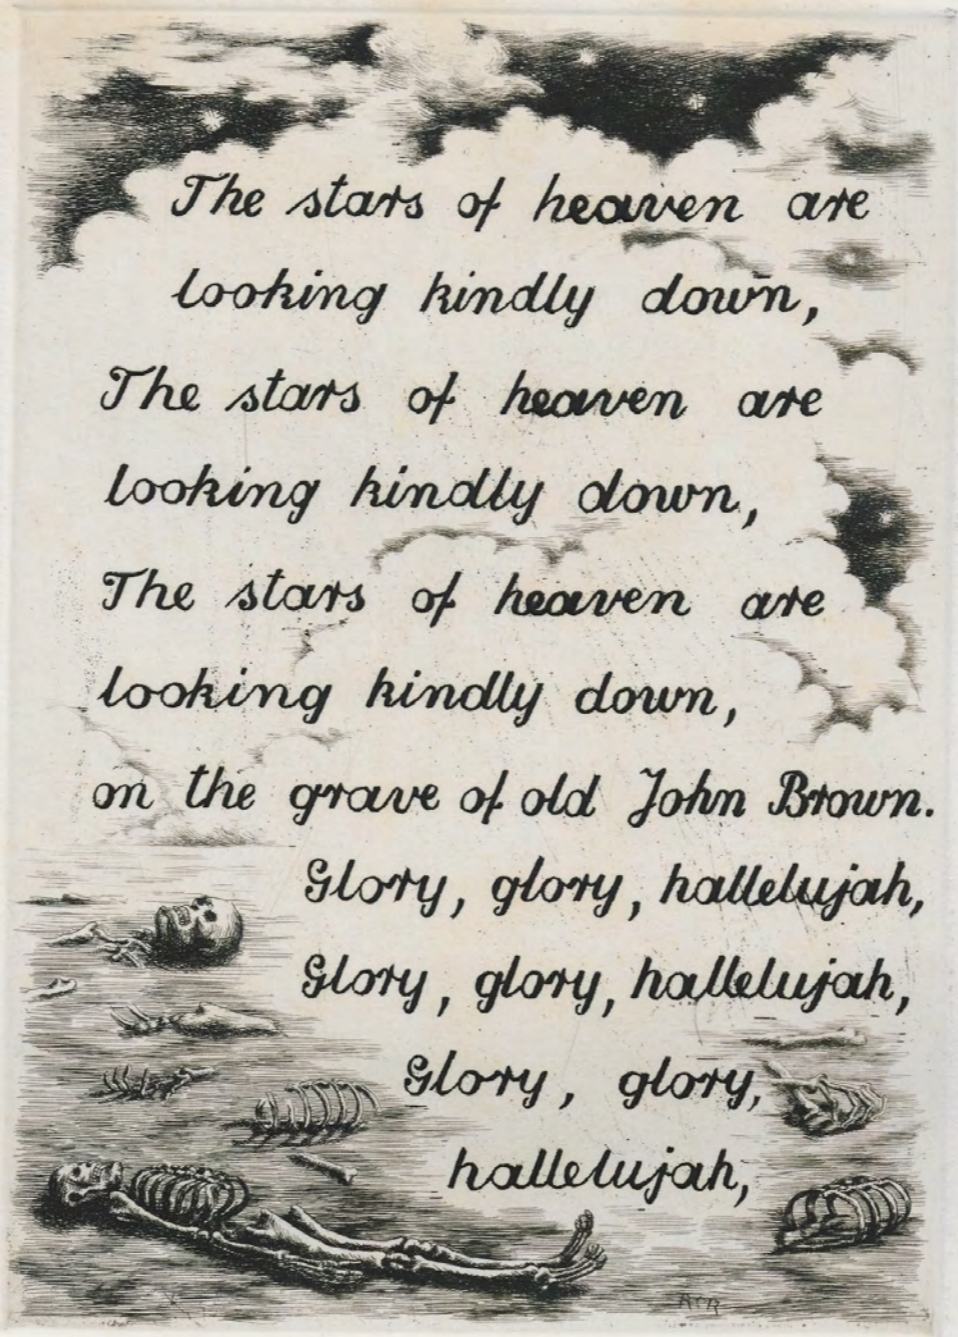 The stars of heaven are
looking kindly down,
The stars of heaven are
looking kindly down,
The stars of heaven are
looking kindly down,
on the grave of old John Brown.
Glory, glory, hallelujah,
Glory, glory, hallelujah,
Glory, glory,
hallelujah,